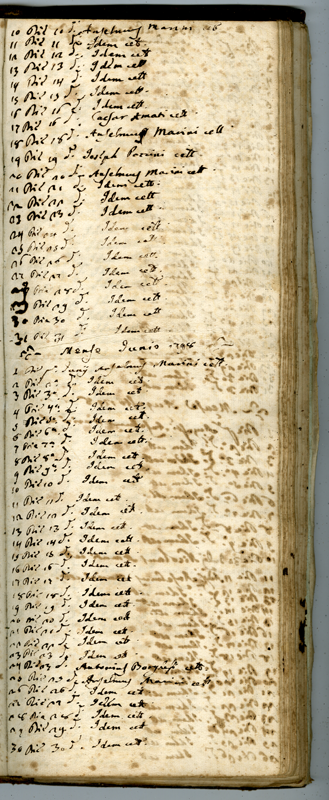 10 Die 10 d. Anselmus Marini cett
11 Die 11 d. Idem cett.
12 Die 12 d. Idem cett
13 Die 13 d. Idem cett
14 Die 14 d. Idem cett
15 Die 15 d. Idem cett.
16 Die 16 d. Idem cett
17 Die d. Caesar Amati cett.
18 Die 18 d. Anselmus Marini cett.
19 Die 19 d. Joseph cett
20 Die 20 d. Anselmus Marini cett
21 Die 21 d. Idem cett.
22 Die 22 d. Idem cett
23 Die 23 d. Idem cett.
24 Die d. Idem cett
25 Die 25 d. Idem cett
26 Die 26 d. Idem cett.
27 Die 27 d. Idem cett.
Die 28 d. Idem cett
Die 29 d. Idem cett
30 Die 30 d. Idem cett
31 Die 31 d. Idem cett
Mense Junio
1 Die Junij Anselmus Marini cett
2 Die 2 d. Idem cett
3 Die 3 d. Idem cett
4 Die 4 d. Idem cett
5 Die 5 d. Idem cett
6 Die 6 d. Idem cett.
7 Die 7 d. Idem cett.
8 Die 8 d. Idem cett
9 Die 9 d. Idem cett
10 Die 10 d. Idem cett
11 Die 11 d. Idem cet.
12 Die 12 d. Idem cet.
13 Die 13 d. Idem cett
14 Die 14 d. Idem cett
15 Die 15 d. Idem cett.
16 Die 16 d. Idem cett
17 Die 17 d. Idem cett
18 Die 18 d. Idem cett
19 Die 19 d. Idem cett
20 Die 20 d. Idem cett
21 Die 21 d. Idem cett
22 Die 22 d. Idem cett
23 Die 23 d. Idem cett
24 Die d. Antonius cett.
25 Die 25 d. Anselmus Marini cett
26 Die 26 d. Idem cett
27 Die 27 d. Idem cett
28 Die 28 d. Idem cett
29 Die 29 d. Idem cett
30 Die 30 d. Idem cett.